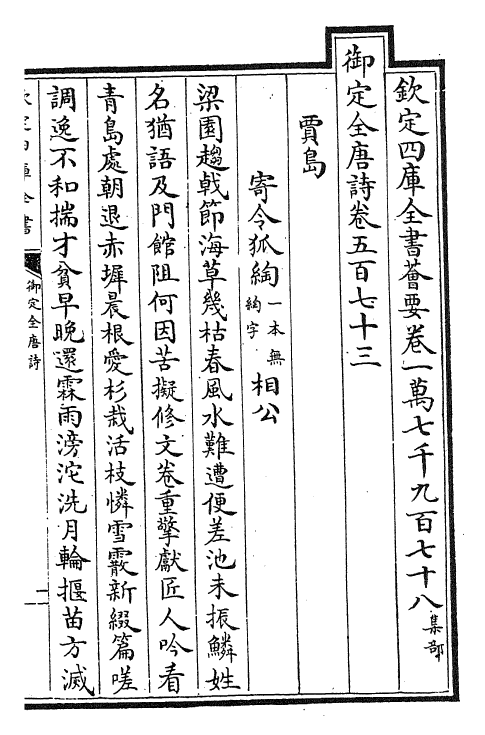 欽定四庫全書薈要卷一萬七千九百七十八集部
御定全唐詩卷五百七十三
賈島
寄令狐綯一本無綯字相公
梁園趨戟節海草幾枯春風水難遭便差池未振鱗姓
名猶語及門館阻何因苦擬修文卷重擎獻匠人吟看
青島處朝退赤墀晨根愛杉栽活枝憐雪霰新綴篇嗟
調逸不和揣才貧早晚還霖雨滂沱洗月輪揠苗方滅
欽定四庫全書
御定全唐詩
一